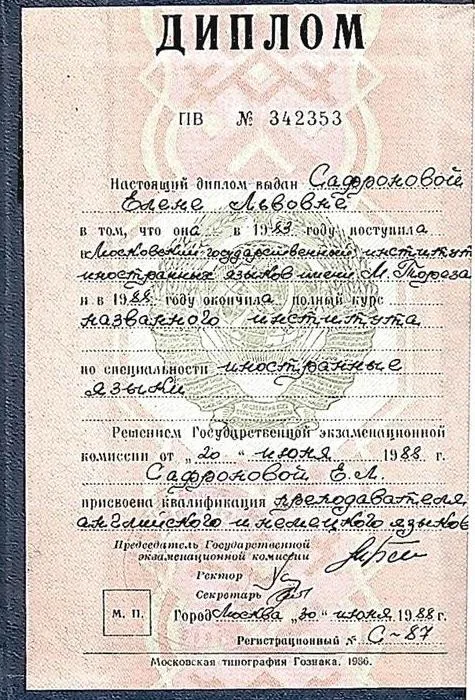 ДИПЛОМ
ПВ № 342353
Настоящий диплом выдан Сафроновой
Елене Львовне
в том, что она в 1983 году поступила
в Московский государственный институт
иностранных языков имени М. Тореза
и в 1988 году окончила полный курс
названного института
по специальности иностранные
языки
Решением Государственной экзаменационной
комиссии от „20" июня 1988 г.
Сафроновой Е.Л.
присвоена квалификация преподавателя
английского и немецкого языков
Председатель Государственной
экзаменационной комиссии
Ректор
Секретарь
М. П.
Город Москва „30" июня 1988 г.
Регистрационный № С-87
Московская типография Гознака. 1986.